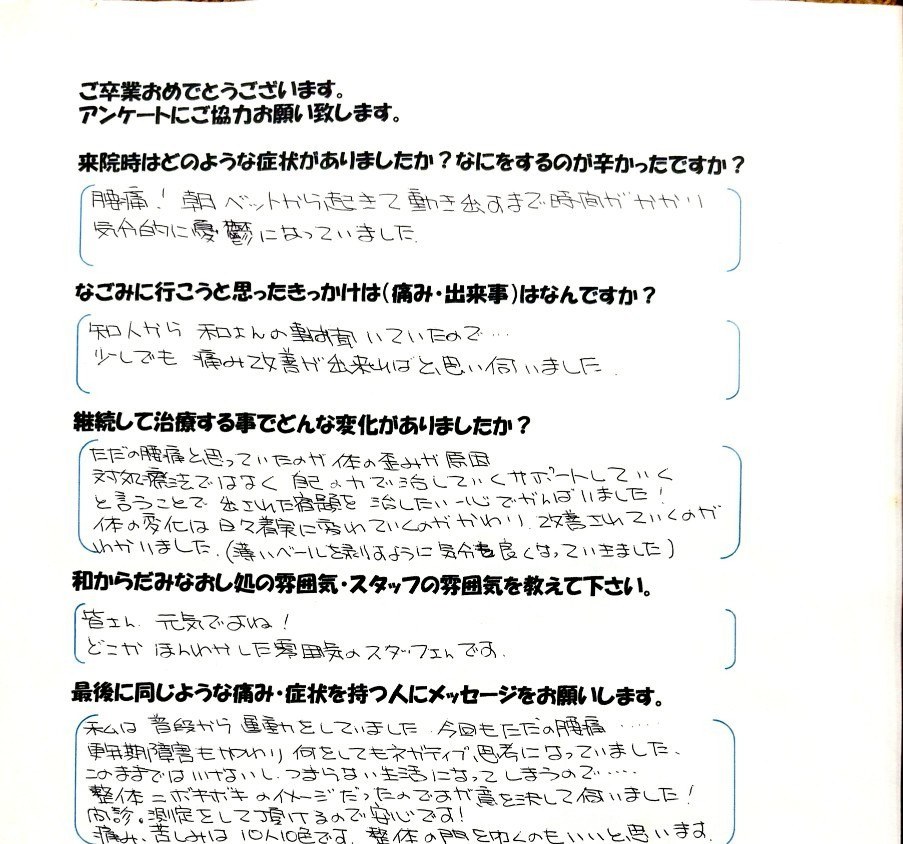 ご卒業おめでとうございます。
アンケートにご協力お願い致します。
来院時はどのような症状がありましたか？なにをするのが辛かったですか？
腰痛！朝ベットから起きて動き出すまで時間がかかり
気分的に憂鬱になっていました.
なごみに行こうと思ったきっかけは（痛み・出来事）はなんですか？
知人から 和さんの事お聞いていたので…
少しでも 痛み改善が出来ればと思い伺いました.
継続して治療する事でどんな変化がありましたか？
ただの腰痛と思っていたのが体の歪みが原因
対処療法ではなく 自己の力で治していくサポートしていく
と言うことで 出された宿題を 治したい一心でがんばりました！
体の変化は日々着実に変わていくのがかわり. 改善されていくのが
わかりました.（薄いベールを剥すように気分も良くなっていきました）
和からだみなおし処の雰囲気・スタッフの雰囲気を教えて下さい。
皆さん 元気ですよね！
どこか ほんわかした雰囲気のスタッフさんです.
最後に同じような痛み・症状を持つ人にメッセージをお願いします。
私は 普段から 運動をしていました. 今回もただの腰痛……
更年期障害もかわり 何をしてもネガティブ思考になっていました.
このままではいけないし、つまらない生活になってしまうので……
整体＝ボキボキのイメージだったのですが意を決して伺いました！
問診、測定をして頂けるので安心です！
痛み、苦しみは 10人10色です. 整体の門を叩くのもいいと思います.